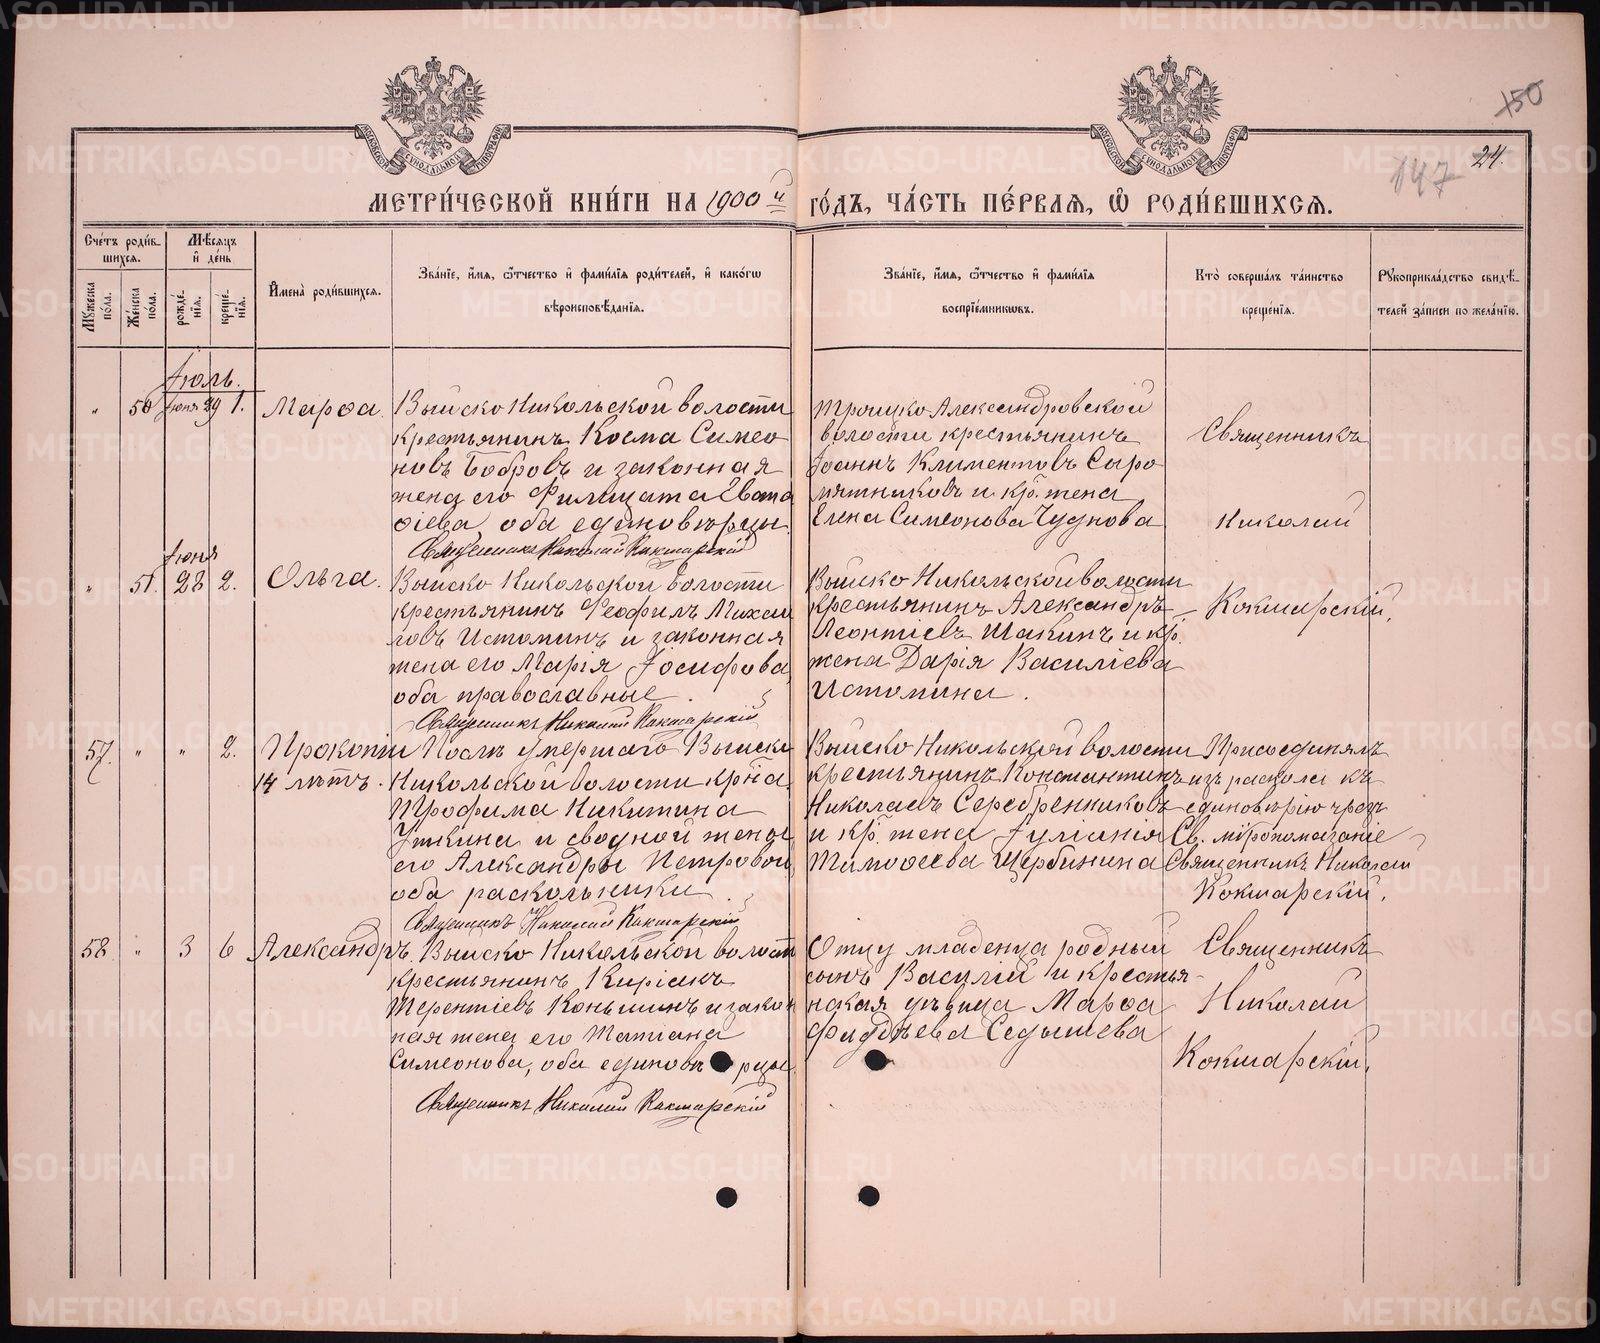 150
24.
147
МЕТРИ́ЧЕСКОЙ КНИ́ГИ НА 1900й ГО́ДЪ, ЧА́СТЬ ПЕ́РВАЯ, Ѽ РОДИ́ВШИХСЯ.
Сче́тъ роди́в-
шихся.
Мꙋ́жеска по́ла.
Же́нска по́ла.
Мѣ́сяцъ и҆ де́нь
рожде́-
нїя.
креще́-
нїя.
И҆мена̀ роди́вшихся.
Зва́нїе, и҆́мя, ѻ҆́тчество и҆ фами́лїя роди́телей, и҆ како́гѡ
вѣроисповѣ́данїя.
Зва́нїе, и҆́мя, ѻ҆́тчество и҆ фами́лїя
воспрїе́мникѡвъ.
Кто̀ соверша́лъ та́инство
креще́нїя.
Рꙋкоприкла́дство свидѣ́-
телей за́писи по жела́нїю.
Іюль.
" 50 Іюня 29 1. Марѳа.
Выйско Никольской волости
крестьянинъ Косма Симео
новъ Бобровъ и законная
жена его Филицата Евста
ѳіева, оба единовѣрцы.
Священникъ Николай Кокшарскій
Троицко Александровской
волости крестьянинъ
Іоаннъ Климентовъ Сыро
мятниковъ и кр. жена
Елена Симеонова Чуднова
Священникъ
Николай
Кокшарскій.
Іюня
" 51. 28 2. Ольга.
Выйско Никольской волости
крестьянинъ Феофилъ Михаи
ловъ Истоминъ и законная
жена его Марія Іосифова,
оба православные.
Священникъ Николай Кокшарскій
Выйско Никольской волости
крестьянинъ Александръ
Леонтіевъ Шакинъ и кр.
жена Дарія Василіева
Истомина.
57. " " 2. Прокопій
14 лѣтъ.
Послѣ умершаго Выйско
Никольской волости кр-на
Трофима Никитина
Уткина и сводной жены
его Александры Петровой
оба раскольники.
Священникъ Николай Кокшарскій
Выйско Никольской волости
крестьянинъ Константинъ
Николаевъ Серебренниковъ
и кр. жена Іуліанія
Тимоѳеева Щербинина
Присоединялъ
изъ раскола къ
единовѣрію чрезъ
Св. мѵропомазаніе
Священникъ Николай
Кокшарскій.
58 " 3 6 Александръ.
Выйско Никольской волост
крестьянинъ Киріакъ
Терентіевъ Коньшинъ и закон
ная жена его Татіана
Симеонова, оба единовѣрцы.
Священникъ Николай Кокшарскій
Отцу младенца родный
сынъ Василій и крестья-
нская дѣвица Марѳа
Фаддѣева Седышева
Священникъ
Николай
Кокшарскій.
METRIKI.GASO-URAL.RU